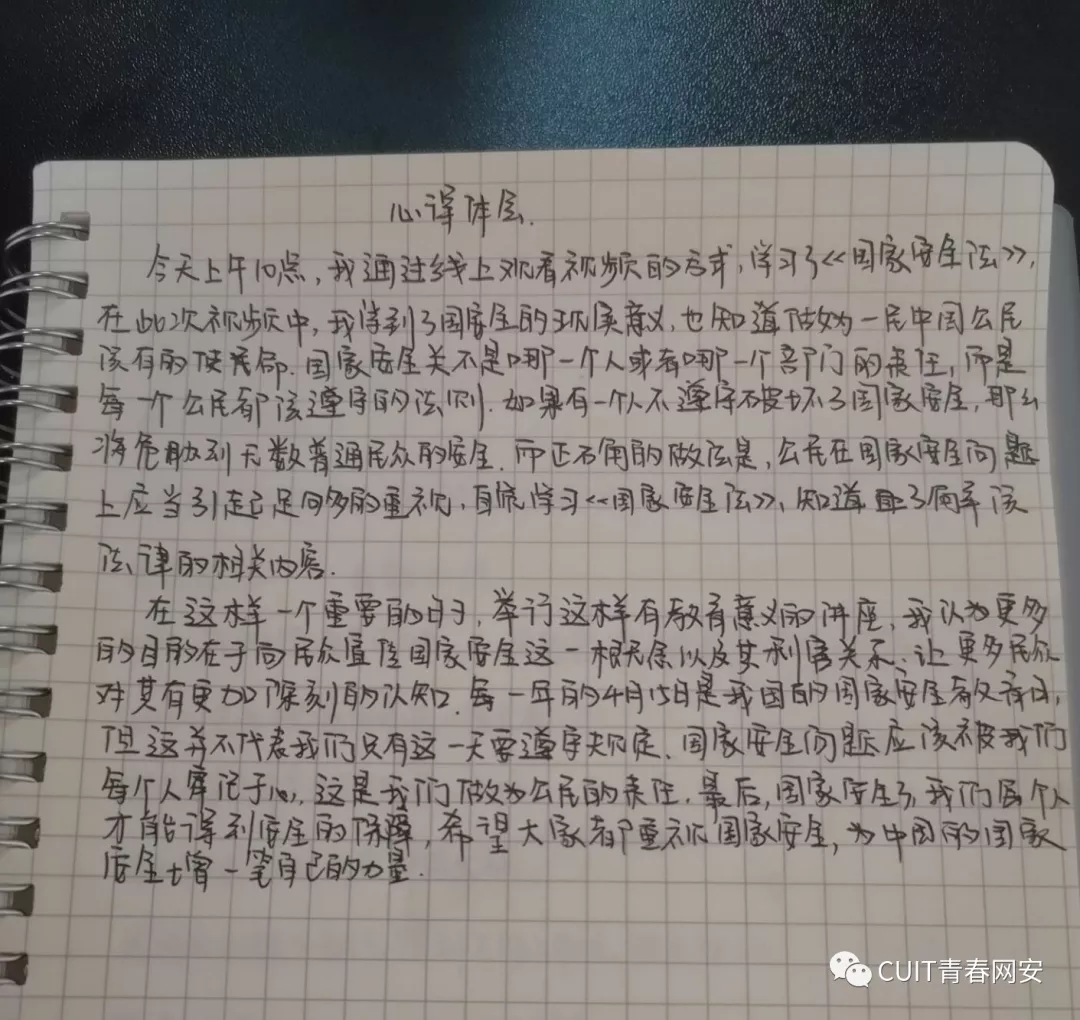 心得体会.
今天上午10点,我通过线上观看视频的方式,学习了《国家安全法》,
在此次视频中,我得到了国家安全的现实意义,也知道做为一民中国公民
该有的使命.国家安全关不是哪一个人或者哪一个部门的责任,而是
每一个公民都该遵守的法则.如果有一个人不遵守破坏了国家安全,那么
将危助到无数普通民众的安全.而正确的做法是,公民在国家安全问题
上应当引起足够多的重视,自觉学习《国家安全法》,知道且了解该
法律的相关内容.
在这样一个重要的日子,举行这样有教育意义的讲座,我认为更多
的目的在于向民众宣传国家安全这一概念以及其利害关系,让更多民众
对其有更加深刻的认知.每一年的4月15日是我国的国家安全教育日,
但这并不代表我们只有这一天要遵守规定.国家安全问题应该被我们
每个人牢记于心,这是我们做为公民的责任.最后,国家安全了,我们每个人
才能得到安全的保障,希望大家都重视国家安全,为中国的国家
安全增一笔自己的力量.
CUIT青春网安